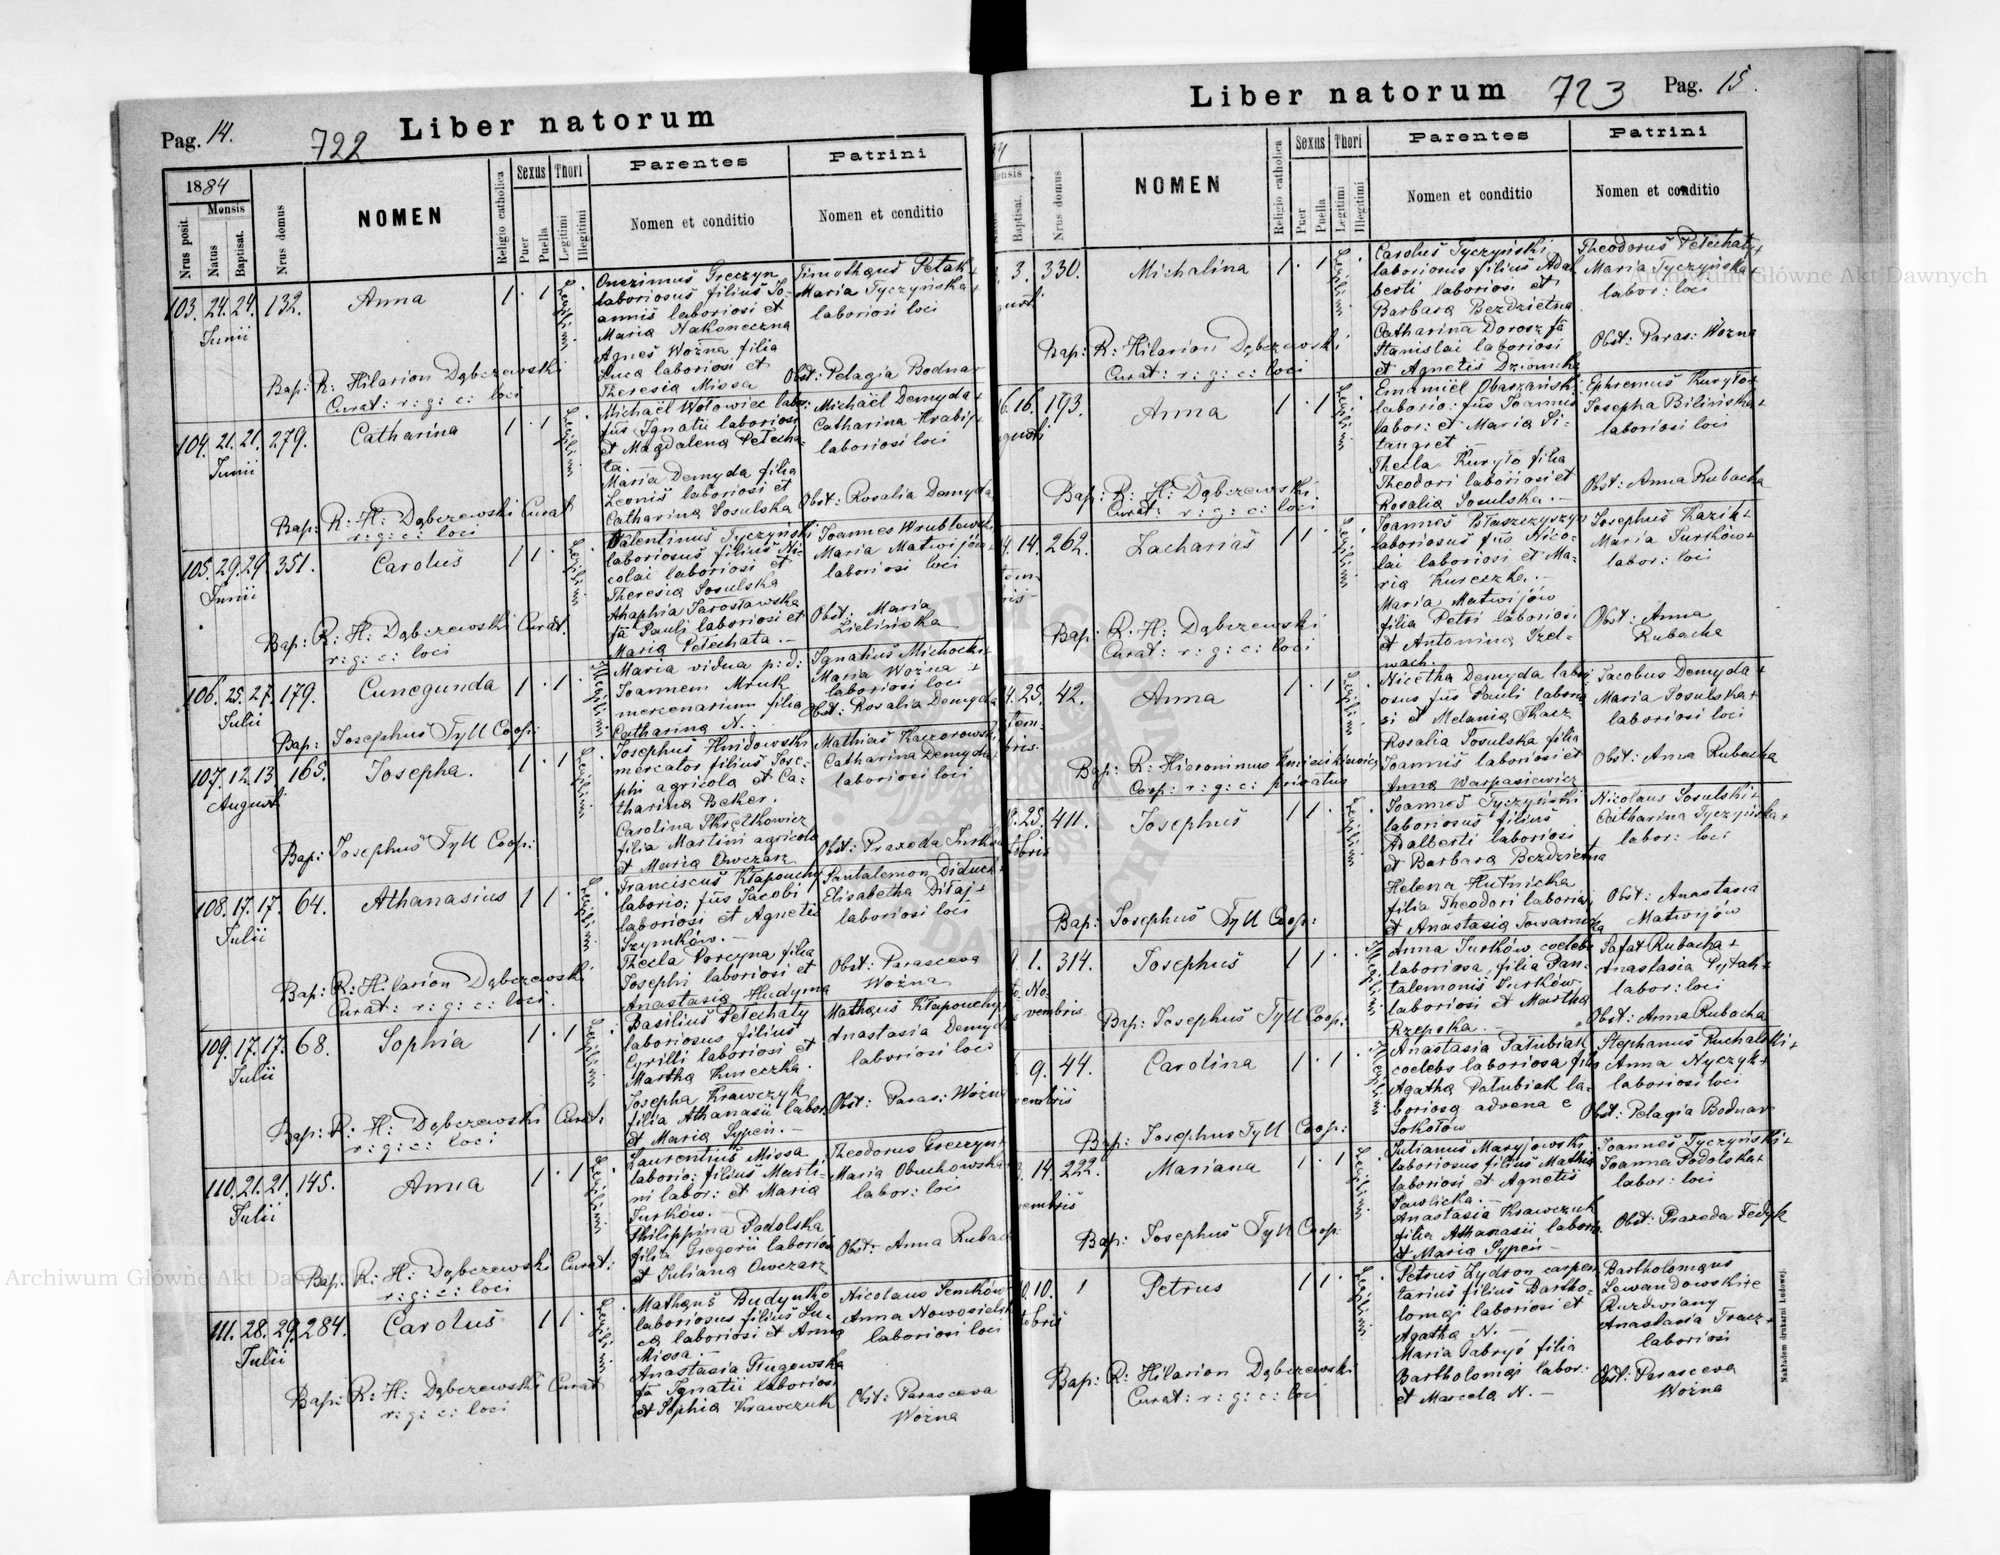 Pag. 14.
722
Liber natorum
1884
Nrus posit.
Mensis
Natus
Baptisat.
Nrus domus
NOMEN
Religio catholica
Sexus
Puer
Puella
Thori
Legitimi
Illegitimi
Parentes
Nomen et conditio
Patrini
Nomen et conditio
103. 24. 24. 132.
Junii
Anna
1 · 1
Legitimi
Onezimus Greczyn
laboriosus filius Jo-
annis laboriosi et
Maria Nakoneczna
Agnes Woźna filia
Luca laboriosi et
Theresia Missa
Timothaus Petak +
Maria Tyczyńska +
laboriosi loci
Obst: Pelagia Bodnar
Bap: R: Hilarion Dąbczewski
Curat: r: g: c: loci
104. 21. 21. 279.
Junii
Catharina
1 · 1
Legitimi
Michaël Wołowiec labor:
fus Ignatii laboriosi
et Magdalena Petecha-
ta. —
Maria Demyda filia
Leonis laboriosi et
Catharina Sosulska
Michaël Demyda +
Catharina Hrabij +
laboriosi loci
Obst: Rosalia Demyda
Bap: R: H: Dąbczewski Curat
r: g: c: loci
105. 29. 29 351.
Junii
Carolus
1 1 ·
Legitimi
Valentinus Tyczyński
laboriosus filius Ni-
colai laboriosi et
Theresia Sosulska
Ahaphia Jarosławska
fa Pauli laboriosi et
Maria Petechata. —
Joannes Wrublewski
Maria Matwijów +
laboriosi loci
Obst: Maria
Zielińska
Bap: R: H: Dąbczewski Curat.
r: g: c: loci
106. 25. 27. 179.
Julii
Cunegunda
1 · 1
Illegitimi
Maria vidua p: d:
Joannem Mruk
mercenarium filia
Catharina N. .
Ignatius Michocki +
Maria Woźna +
laboriosi loci
Obst: Rosalia Demyda
Bap: Josephus Tyll Coop:
107. 12. 13. 165.
Augusti
Josepha.
1 · 1
Legitimi
Josephus Hnidowski
mercator filius Jose-
phi agricola et Ca-
tharina Beker.
Carolina Skrętkowicz
filia Martini agricola
et Maria Owczarz
Mathias Kaczorowski
Catharina Demyda +
laboriosi loci
Obst: Praxeda Turków
Bap: Josephus Tyll Coop:
108. 17. 17. 64.
Julii
Athanasius
1 1 ·
Legitimi
Franciscus Kłapouchy
laborio: fus Jacobi
laboriosi et Agnetis
Szymków. —
Thecla Porcyna filia
Josephi laboriosi et
Anastasia Hudyma
Pantalemon Diduch +
Elisabetha Ditaj +
laboriosi loci
Obst: Parasceva
Woźna
Bap: R: Hilarion Dąbczewski
Curat: r: g: c: loci.
109. 17. 17. 68.
Julii
Sophia
1 · 1
Legitimi
Basilius Petechaty
laboriosus filius
Cyrilli laboriosi et
Martha Kureczka.
Josepha Krawczyk
filia Athanasii labor.
et Maria Sypeń. —
Mathaus Kłapouchy +
Anastasia Demyda
laboriosi loci
Obst: Paras: Woźna
Bap: R: H: Dąbczewski Curat:
r: g: c: loci
110. 21. 21. 145.
Julii
Anna
1 · 1
Legitimi
Laurentius Missa
laborio: filius Marti-
ni labor: et Maria
Turków. —
Philippina Podolska
filia Gregorii laboriosi
et Juliana Owczarz
Theodorus Greczyn +
Maria Obuchowska
labor: loci
Obst: Anna Rubach
Bap: R: H: Dąbczewski Curat:
r: g: c: loci
111. 28. 29. 284.
Julii
Carolus
1 1 ·
Legitimi
Mathaus Budynko
laboriosus filius Lu-
ca laboriosi et Anna
Missa. —
Anastasia Długowska
fa Ignatii laboriosi
et Sophia Krawczuk
Nicolaus Senków
Anna Nowosielsk
laboriosi loci
Obst: Parasceva
Woźna
Bap: R: H: Dąbczewski Curat
r: g: c: loci
Liber natorum
723
Pag. 15.
Baptisat.
Nrus domus
NOMEN
Religio catholica
Sexus
Puer
Puella
Thori
Legitimi
Illegitimi
Parentes
Nomen et conditio
Patrini
Nomen et conditio
3. 330.
Michalina
1 · 1
Legitimi
Carolus Tyczyński
laboriosus filius Adal
berti laboriosi et
Barbara Bezdzietna
Catharina Dorosz fa
Stanislai laboriosi
et Agnetis
Theodorus Petechaty +
Maria Tyczyńska +
labor: loci
Obst: Paras: Woźna
Bap: R: Hilarion Dąbczewski
Curat: r: g: c: loci
16. 193.
Anna
1 · 1
Legitimi
Emanuël Obarzański
laborio: fus Joannis
labor: et Maria Si-
Thecla Kuryło filia
Theodori laboriosi et
Rosalia Sosulska. —
Ephremus Kuryło +
Josepha Bilińska +
laboriosi loci
Obst: Anna Rubacha
Bap: R: H: Dąbczewski.
Curat: r: g: c: loci
14. 262.
Zacharias
1 1
Legitimi
Joannes Błaszczyszyn
laboriosus fus Nico-
lai laboriosi et Ma-
ria Kureczka. —
Maria Matwijów
filia Petri laboriosi
et Antonina Szel-
wach.
Josephus Kazik +
Maria Turków +
labor: loci
Obst: Anna
Rubacha
Bap: R: H: Dąbczewski
Curat: r: g: c: loci
25. 42.
Anna
1 · 1
Legitimi
Nicetha Demyda labori
osus fus Pauli laborio
si et Melania Tkacz
Rosalia Sosulska filia
Joannis laboriosi et
Anna Warpasiewicz
Jacobus Demyda +
Maria Sosulska +
laboriosi loci
Obst: Anna Rubacha
Bap: R: Hieronimus
Coop: r: g: c: privatus
25. 411.
Josephus
1 1
Legitimi
Joannes Tyczyński
laboriosus filius
Adalberti laboriosi
et Barbara Bezdzietna
Helena Hutnicka
filia Theodori laboriosi
et Anastasia Towarnicka
Nicolaus Sosulski +
Catharina Tyczyńska +
labor: loci
Obst: Anastasia
Matwijów
Bap: Josephus Tyll Coop:
1. 314.
Josephus
1 1
Illegitimi
Anna Turków coelebs
laboriosa, filia Pan-
talemonis Turków
laboriosi et Martha
Rzepska.
Safat Rubacha +
Anastasia Pytah +
labor: loci
Obst: Anna Rubacha
Bap: Josephus Tyll Coop:
9. 44.
Carolina
1 · 1
Illegitimi
Anastasia Pałubiak
coelebs laboriosa filia
Agatha Pałubiak la-
boriosa advena e
Sokołów
Stephanus Kuchalski +
Anna Nyczyk +
laboriosi loci
Obst: Pelagia Bodnar
Bap: Josephus Tyll Coop:
14. 222.
Mariana
1 · 1
Legitimi
Julianus Maryjowski
laboriosus filius Mathia
laboriosi et Agnetis
Sawlicka. —
Anastasia Krawczuk
filia Athanasii laborio
et Maria Sypeń —
Joannes Tyczyński +
Joanna Podolska +
labor: loci
Obst: Praxeda Fedyk
Bap: Josephus Tyll Coop
10. 1
Petrus
1 1
Legitimi
Petrus Zydron carpen
tarius filius Bartho-
lomai laboriosi et
Agatha N. —
Maria Gabryś filia
Bartholomai labor.
et Marcela N. —
Bartholomaus
Lewandowski +
Anastasia Tracz +
laboriosi
Obst: Parasceva
Woźna
Bap: R: Hilarion Dąbczewski
Curat: r: g: c: loci
Nakładem drukarni Ludowej.
Archiwum Główne Akt Dawnych